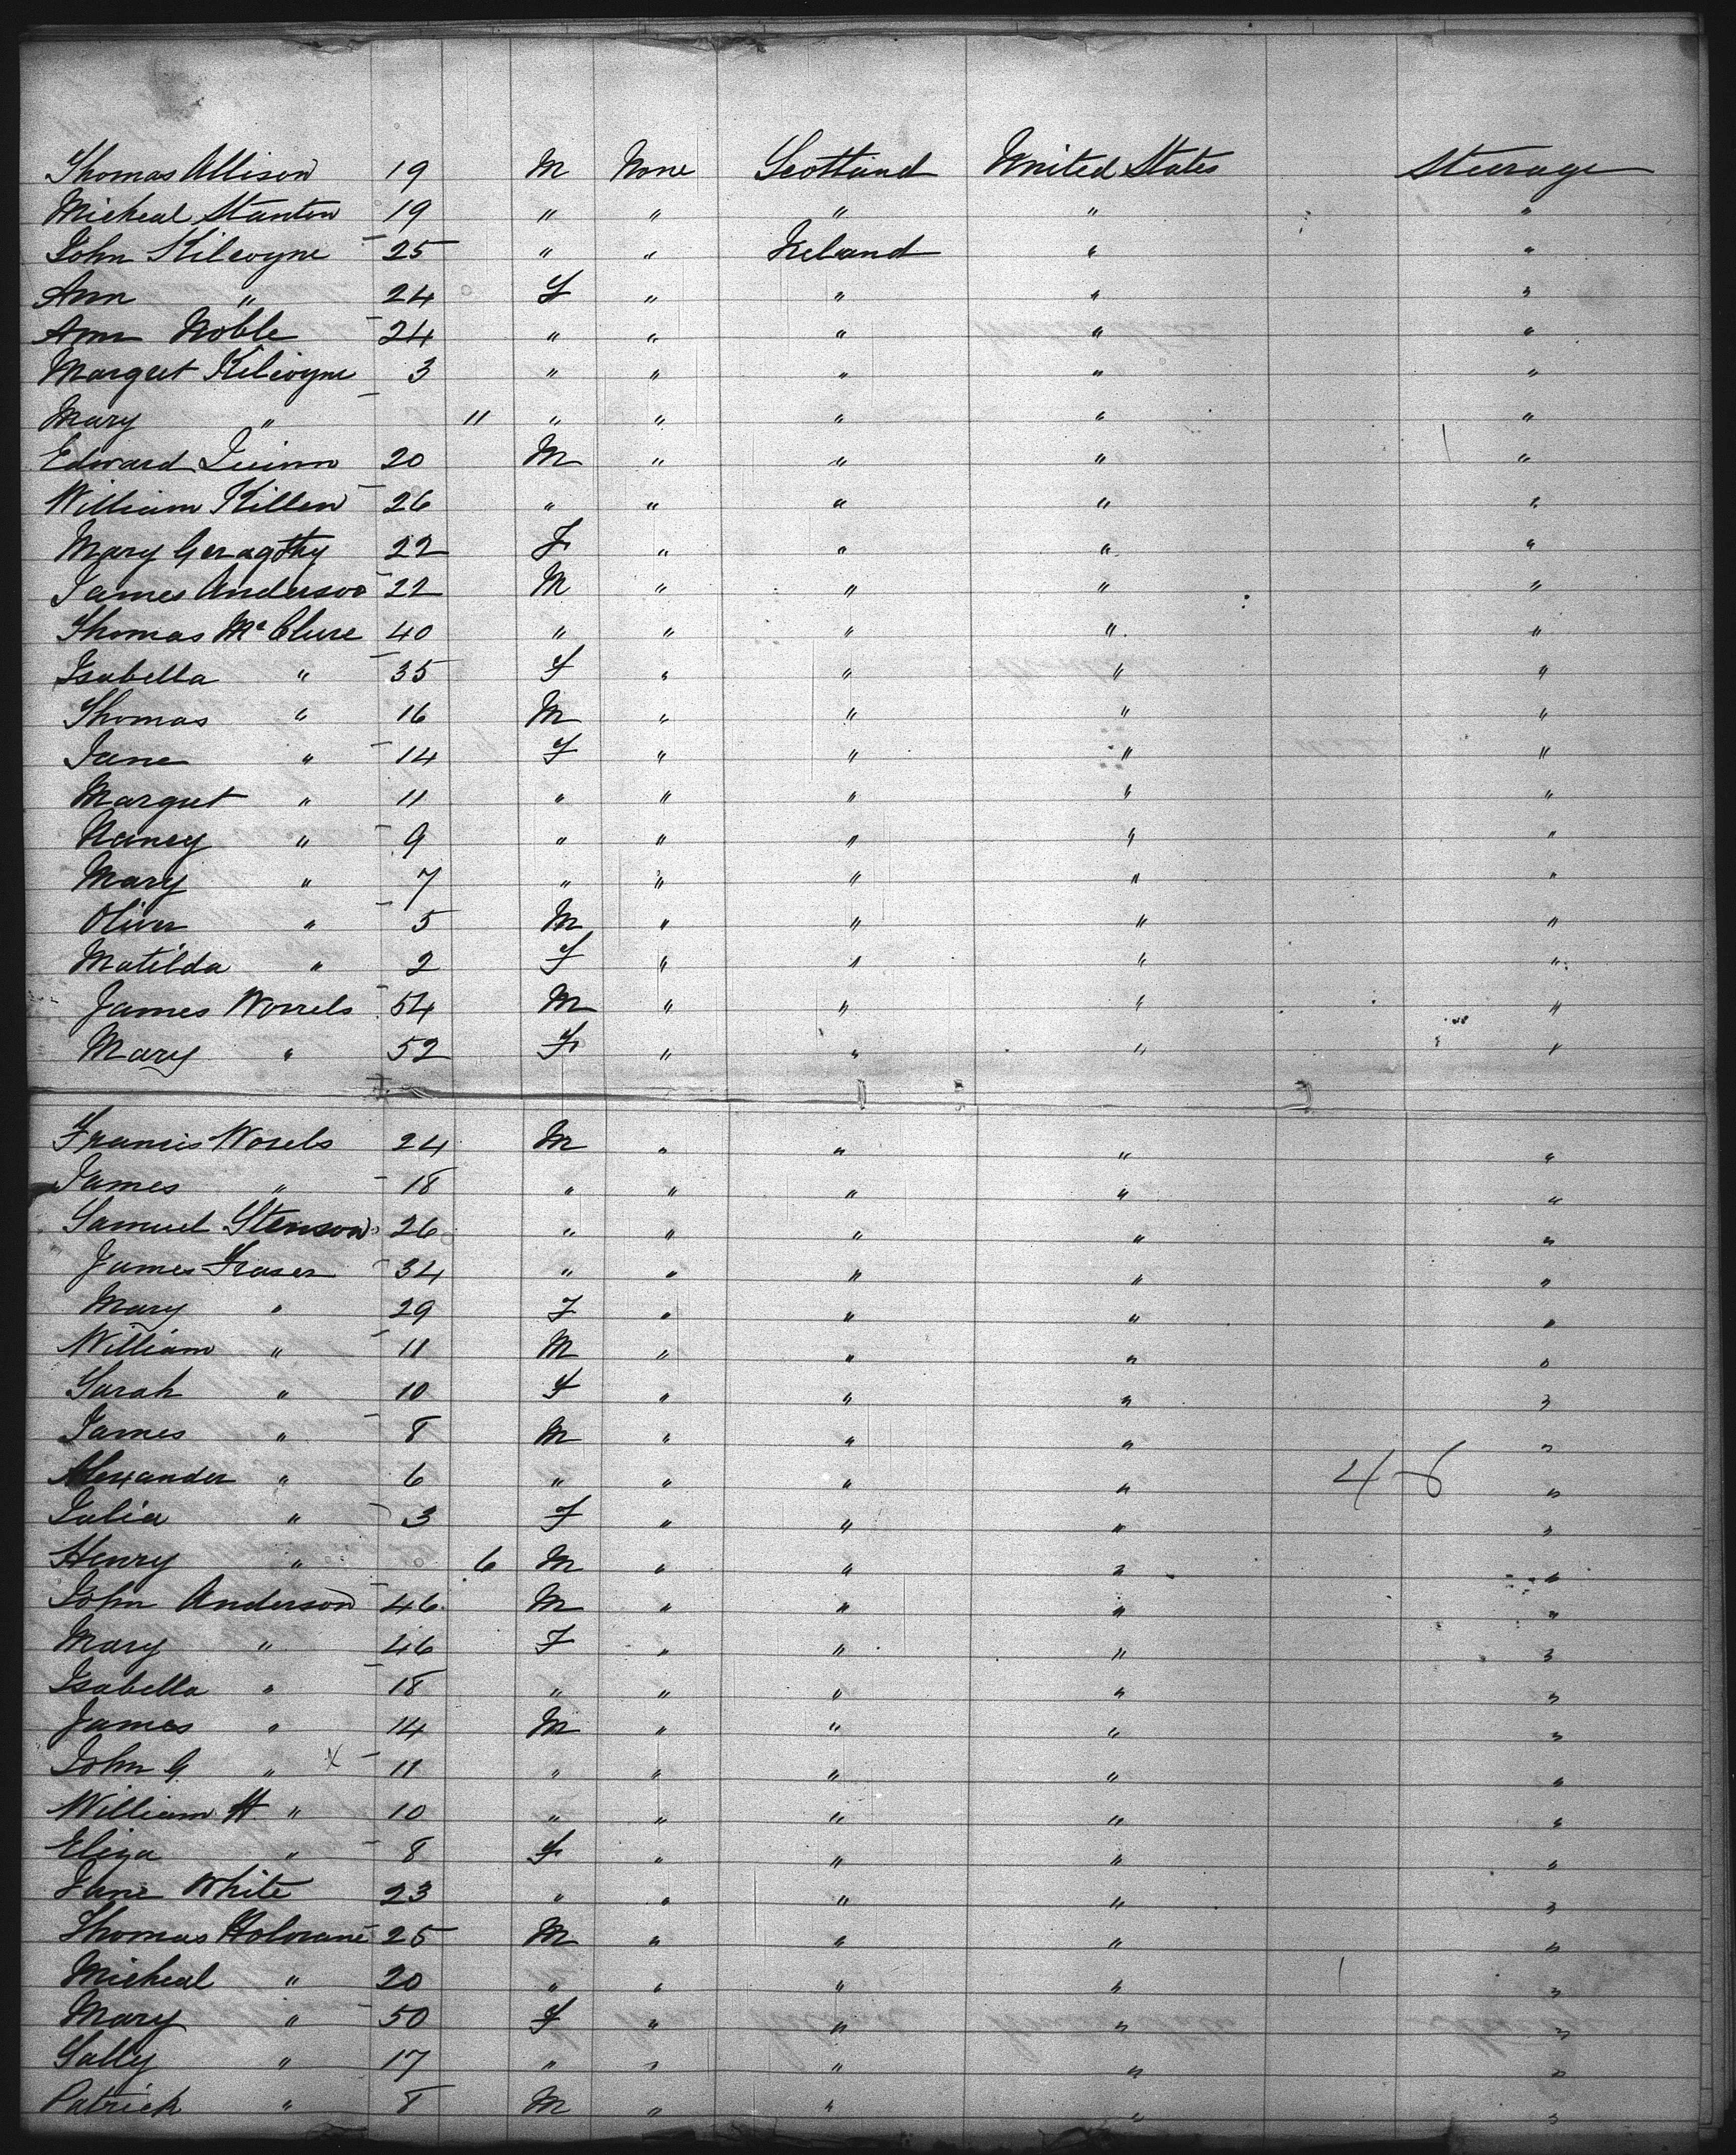 Thomas Allison 19 M None Scotland United States Steerage
Micheal Stanton 19 " " " " "
John Kilcoyne 25 " " Ireland " "
Ann " 24 F " " " "
Ann Noble 24 " " " " "
Margret Kilcoyne 3 " " " " "
Mary " 11 " " " " "
Edward Quinn 20 M " " " "
William Killen 26 " " " " "
Mary Geragthy 22 F " " " "
James Anderson 22 M " " " "
Thomas McClure 40 " " " " "
Isabella " 35 F " " " "
Thomas " 16 M " " " "
Jane " 14 F " " " "
Margret " 11 " " " " "
Nancy " 9 " " " " "
Mary " 7 " " " " "
Oliver " 5 M " " " "
Matilda " 2 F " " " "
James Worrels 54 M " " " "
Mary " 52 F " " " "
Francis Worels 24 M " " " "
James " 18 " " " " "
Samuel Stenson 26 " " " " "
James Fraser 34 " " " " "
Mary " 29 F " " " "
William " 11 M " " " "
Sarah " 10 F " " " "
James " 8 M " " " "
Alexander " 6 " " " " 4-8 "
Julia " 3 F " " " "
Henry " 6 M " " " "
John Anderson 46 M " " " "
Mary " 46 F " " " "
Isabella " 18 " " " " "
James " 14 M " " " "
John G " x 11 " " " " "
William H " 10 " " " " "
Eliza " 8 F " " " "
Jane White 23 " " " " "
Thomas 25 M " " " "
Micheal " 20 " " " " "
Mary " 50 F " " " "
Sally " 17 " " " " "
Patrick " 8 M " " " "